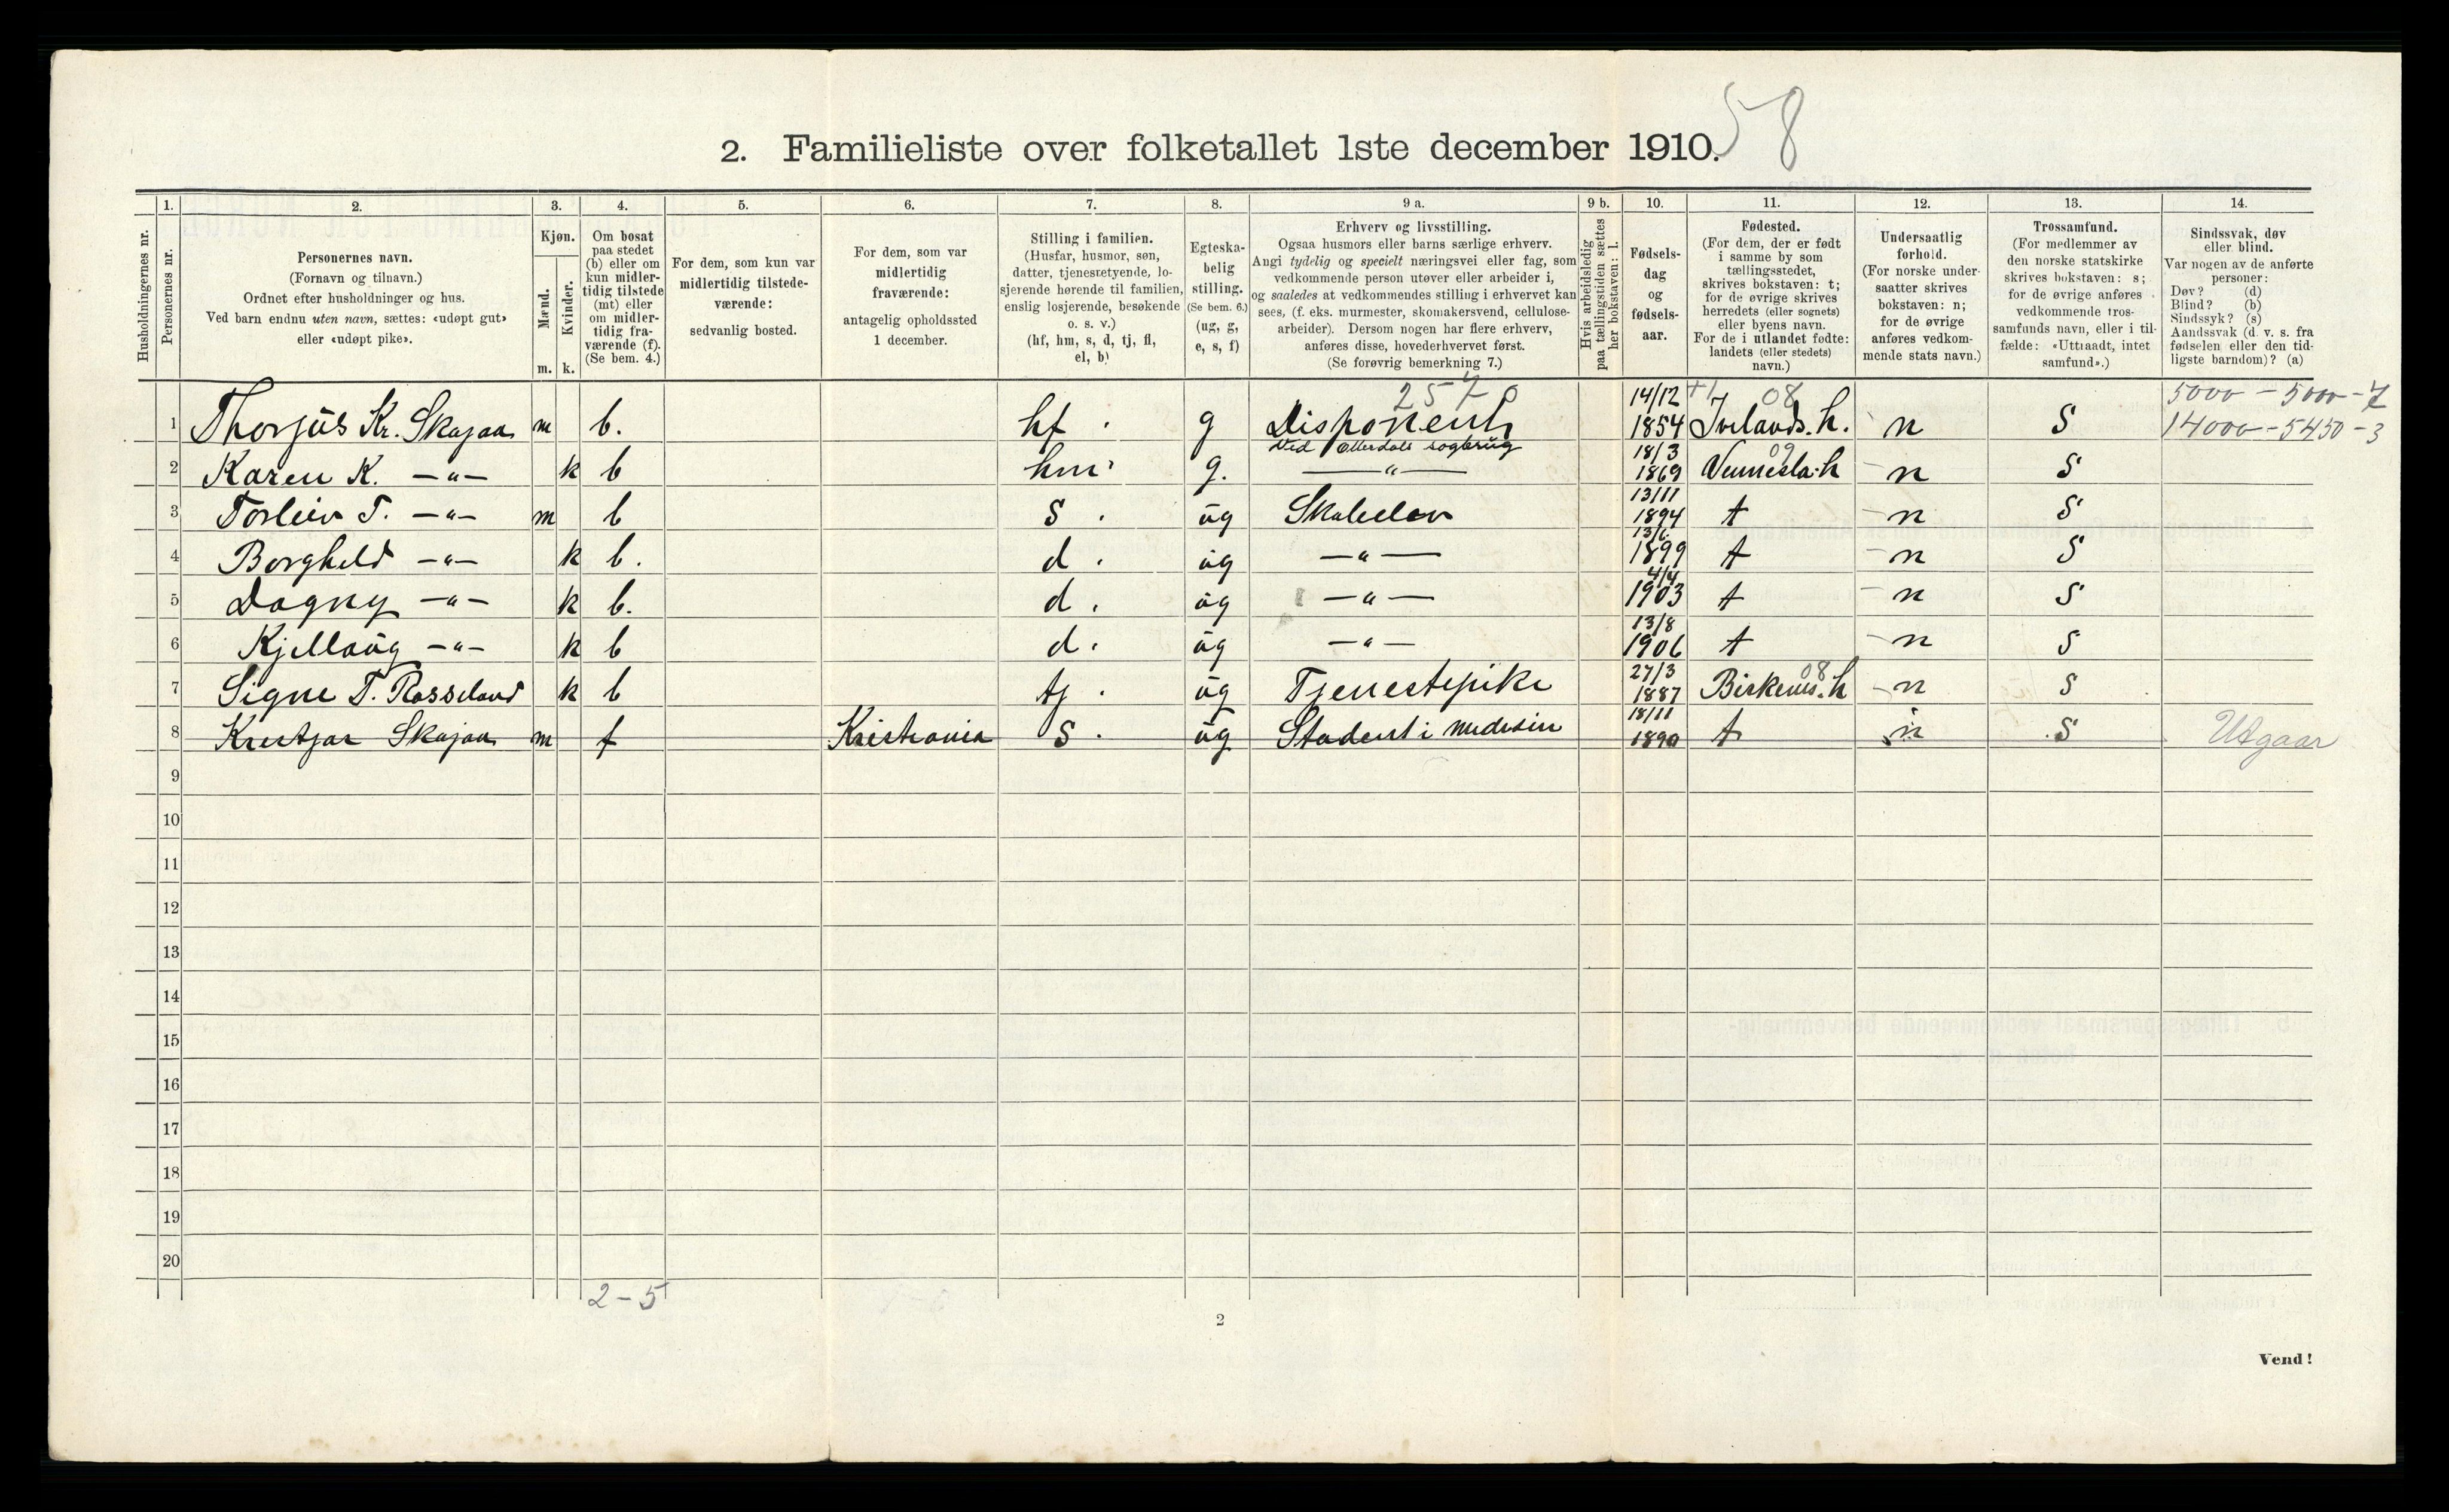 58
2. Familieliste over folketallet 1ste december 1910.
1. 2. 3. 4. 5. 6. 7. 8. 9 a. 9 b. 10. 11. 12. 13. 14.
Husholdningernes nr.
Personernes nr.
Personernes navn.
(Fornavn og tilnavn.)
Ordnet efter husholdninger og hus.
Ved barn endnu uten navn, sættes: «udøpt gut»
eller «udøpt pike».
Kjøn.
Mænd.
Kvinder.
m. k.
Om bosat
paa stedet
(b) eller om
kun midler-
tidig tilstede
(mt) eller
om midler-
tidig fra-
værende (f).
(Se bem. 4.)
For dem, som kun var
midlertidig tilstede-
værende:
sedvanlig bosted.
For dem, som var
midlertidig
fraværende:
antagelig opholdssted
1 december.
Stilling i familien.
(Husfar, husmor, søn,
datter, tjenestetyende, lo-
sjerende hørende til familien,
enslig losjerende, besøkende
o. s. v.)
(hf, hm, s, d, tj, fl,
el, b)
Egteska-
belig
stilling.
(Se bem. 6.)
(ug, g,
e, s, f)
Erhverv og livsstilling.
Ogsaa husmors eller barns særlige erhverv.
Angi tydelig og specielt næringsvei eller fag, som
vedkommende person utøver eller arbeider i,
og saaledes at vedkommendes stilling i erhvervet kan
sees, (f. eks. murmester, skomakersvend, cellulose-
arbeider). Dersom nogen har flere erhverv,
anføres disse, hovederhvervet først.
(Se forøvrig bemerkning 7.)
Hvis arbeidsledig
paa tællingstiden sættes
her bokstaven: l.
Fødsels-
dag
og
fødsels-
aar.
Fødested.
(For dem, der er født
i samme by som
tællingsstedet,
skrives bokstaven: t;
for de øvrige skrives
herredets (eller sognets)
eller byens navn.
For de i utlandet fødte:
landets (eller stedets)
navn.)
Undersaatlig
forhold.
(For norske under-
saatter skrives
bokstaven: n;
for de øvrige
anføres vedkom-
mende stats navn.)
Trossamfund.
(For medlemmer av
den norske statskirke
skrives bokstaven: s;
for de øvrige anføres
vedkommende tros-
samfunds navn, eller i til-
fælde: «Uttraadt, intet
samfund».)
Sindssvak, døv
eller blind.
Var nogen av de anførte
personer:
Døv? (d)
Blind? (b)
Sindssyk? (s)
Aandssvak (d. v. s. fra
fødselen eller den tid-
ligste barndom)? (a)
257 08 5000 - 5000 - 7
1 Thorjus Kr. Skajaa m b. hf . g Disponent 14/12 1854 Ivelands. h. n S 14000 - 5450 - 3
ved Otterdals sagbrug
2 Karen K. —"— k b hm . g. —"— 18/3 1869 Vennesla. h 09 n S
3 Torleiv T. —"— m b S . ug Skoleelev 13/11 1894 t n S
4 Borghild —"— k b. d . ug —"— 13/6 1899 t n S
5 Dagny —"— k b. d . ug —"— 4/4 1903 t n S
6 Kjellaug —"— k b d . ug —"— 13/8 1906 t n S
7 Signe T. Rosseland k b tj . ug Tjenestepike 27/3 1887 Birkenes. h 08 n S
8 Kristjar Skajaa m f Kristiania S . ug Student i medisin 18/11 1890 t n S Utgaar
9
10
11
12
13
14
15
16
17
18
19
20
2 - 5
2
Vend!